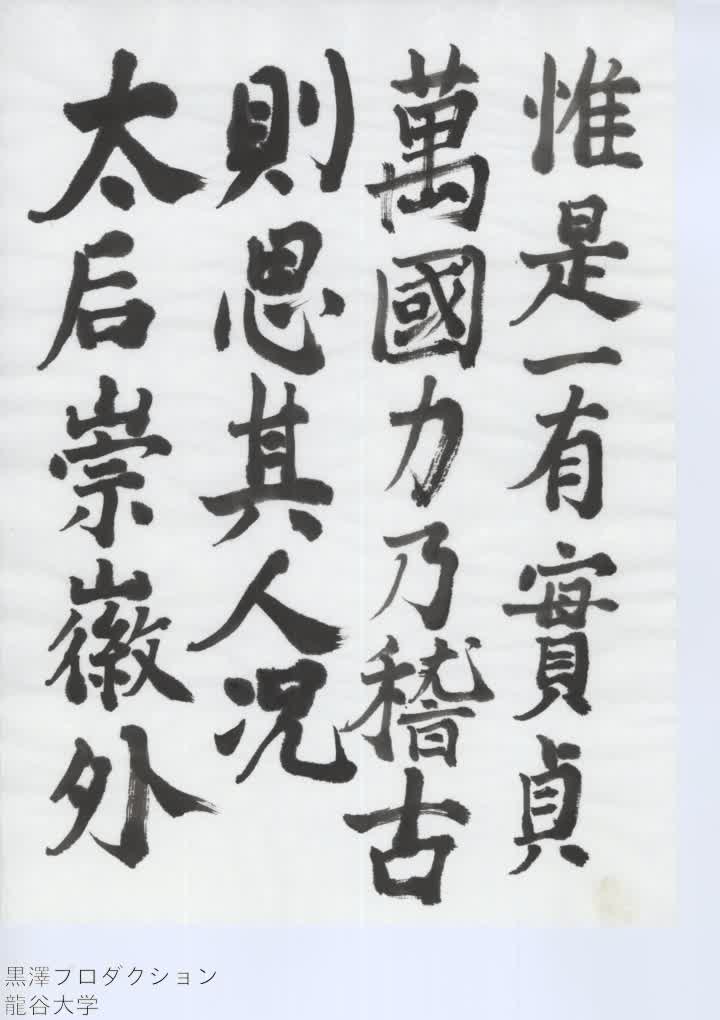 惟是一有實貞
萬國力乃稽古
則思其人況
太后崇徽外
黒澤プロダクション
龍谷大学